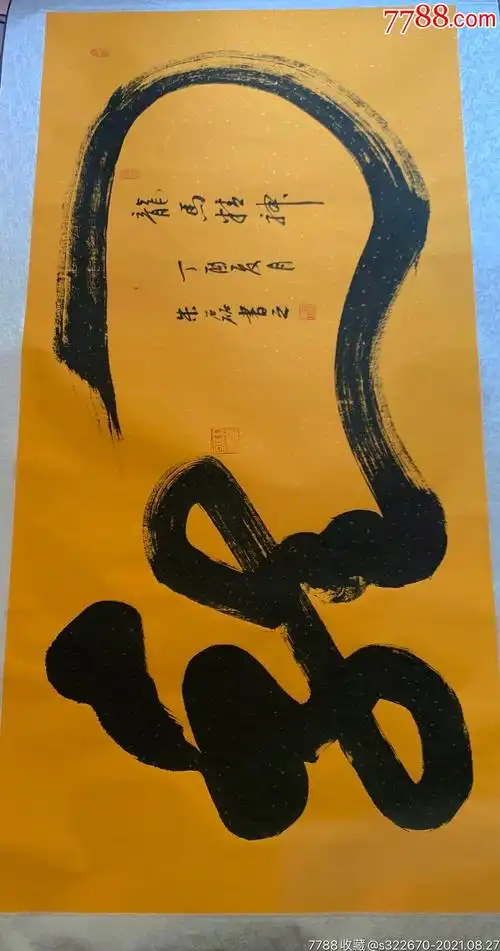 7788.com
龍
龍馬精神
丁酉夏月
朱磊書之
7788收藏@s322670-2021.08.27